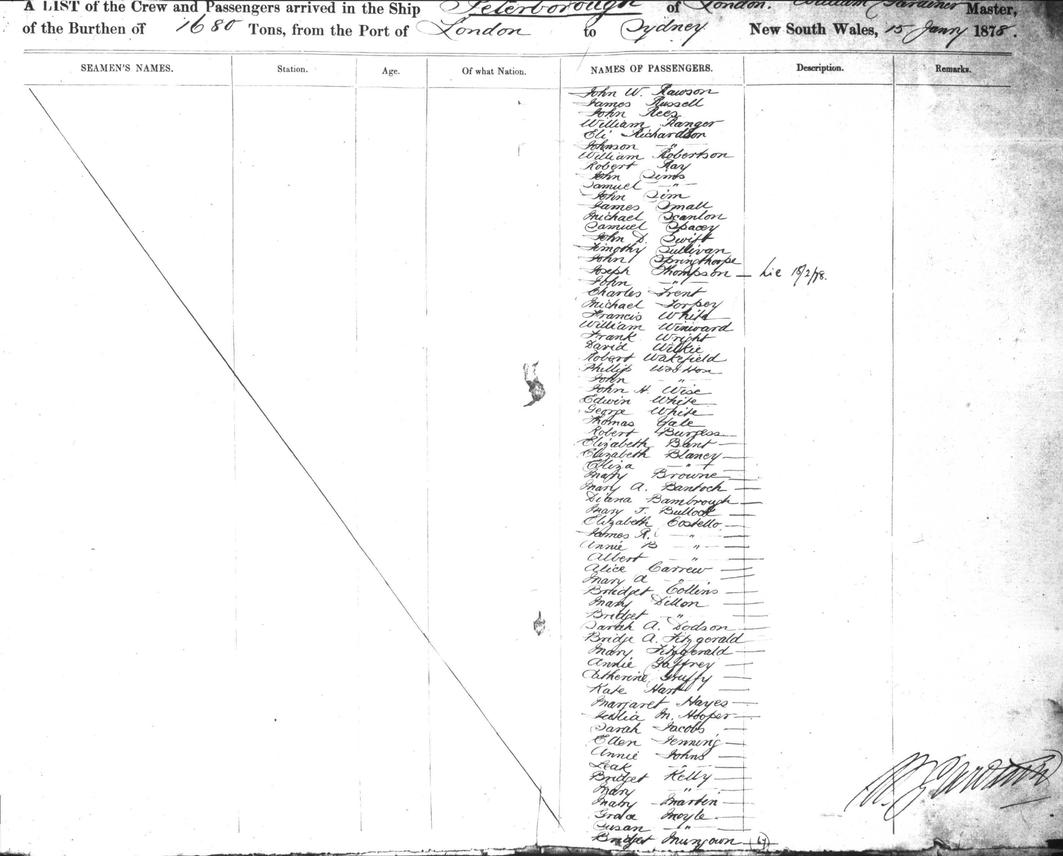 A LIST of the Crew and Passengers arrived in the Ship Peterborough of London. William Gardiner Master,
of the Burthen of 1680 Tons, from the Port of London to Sydney New South Wales, 15 Jany 1878.
SEAMEN'S NAMES. Station. Age. Of what Nation. NAMES OF PASSENGERS. Description. Remarks.
John W. Rawson
James Russell
John Rees
William Ranger
Eli Richardson
Johnson "
William Robertson
Robert Ray
John Sims
Samuel "
John Sim
James Small
Michael Scanlon
Samuel Spacey
John D. Swift
Timothy Sullivan
John Springthorpe
Joseph Thompson
John "
Charles Trent
Michael Torpey
Francis White
William Winward
Frank Wright
David Wilkie
Robert Wakefield
Phillip
John "
John H. Wise
Edwin White
George White
Thomas Yate
Robert Burgess
Elizabeth Bant
Elizabeth Blaney
Eliza "
Mary Browne
Mary A. Bantoch
Diana Bambrough
Mary J. Bullock
Elizabeth Costello
James R. "
Annie B "
Albert "
Alice Carrew
Mary A "
Bridget Collins
Mary Dillon
Bridget "
Sarah A. Dodson
Bridge A. Fitzgerald
Mary Fitzgerald
Annie Gaffrey
Catherine Gruffy
Kate Hart
Margaret Hayes
M. Hooper
Sarah Jacobs
Ellen Jenning
Annie Johns
Leak "
Bridget Kelly
Mary "
Mary Martin
Moyle
Susan "
Bridget